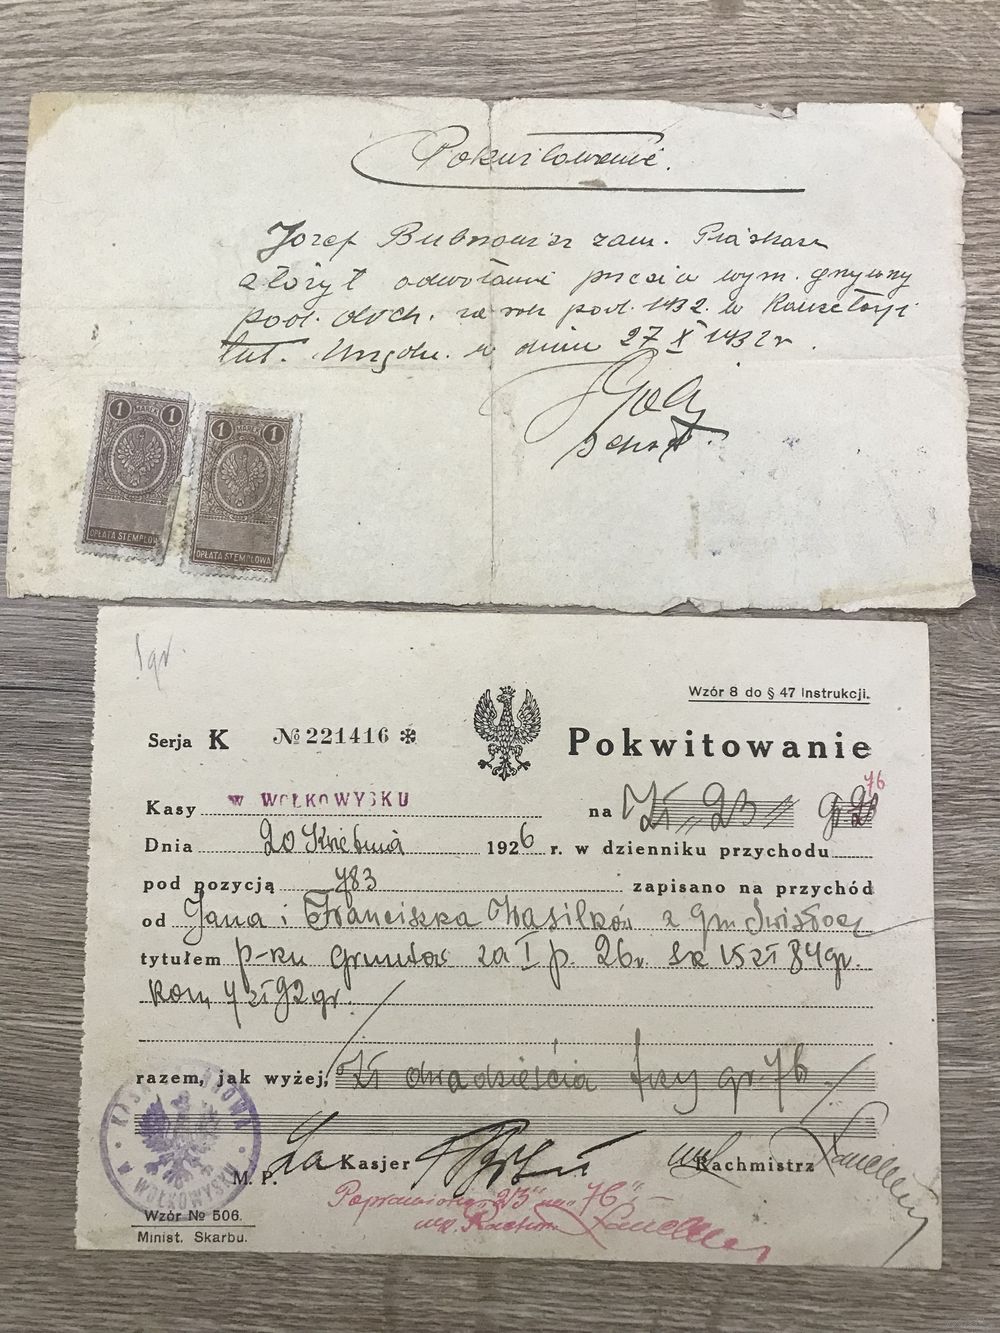 Pokwitowanie.
Józef Bubnowicz zam. Piaskach
złożył odwołanie przeciw wym. grzywny
pod. doch. za rok pod. 1932. w Kancelarji
tut. Urzędu. w dniu 27 X 1932 r.
1 MARKA 1
OPŁATA STEMPLOWA
1 MARKA 1
OPŁATA STEMPLOWA
Wzór 8 do § 47 Instrukcji.
Serja K № 221416 ✻ Pokwitowanie
76
Kasy W WOŁKOWYSKU na Zł „ 23 „ gr. 23
Dnia 20 Kwietnia 1926 r. w dzienniku przychodu
pod pozycją 783 zapisano na przychód
od Jana i Franciszka Wasilków z gm Świsłocz
tytułem p-ku Gruntow za I p. 26r. Sk 15 zł 84 gr.
kom 7 zł 92 gr.
razem, jak wyżej, Zł dwadzieścia trzy gr. 76
KASA SKARBOWA
W WOŁKOWYSKU
M. P. Za Kasjer Rachmistrz
Poprawiono „23" na „76"
Wzór № 506.
Minist. Skarbu.